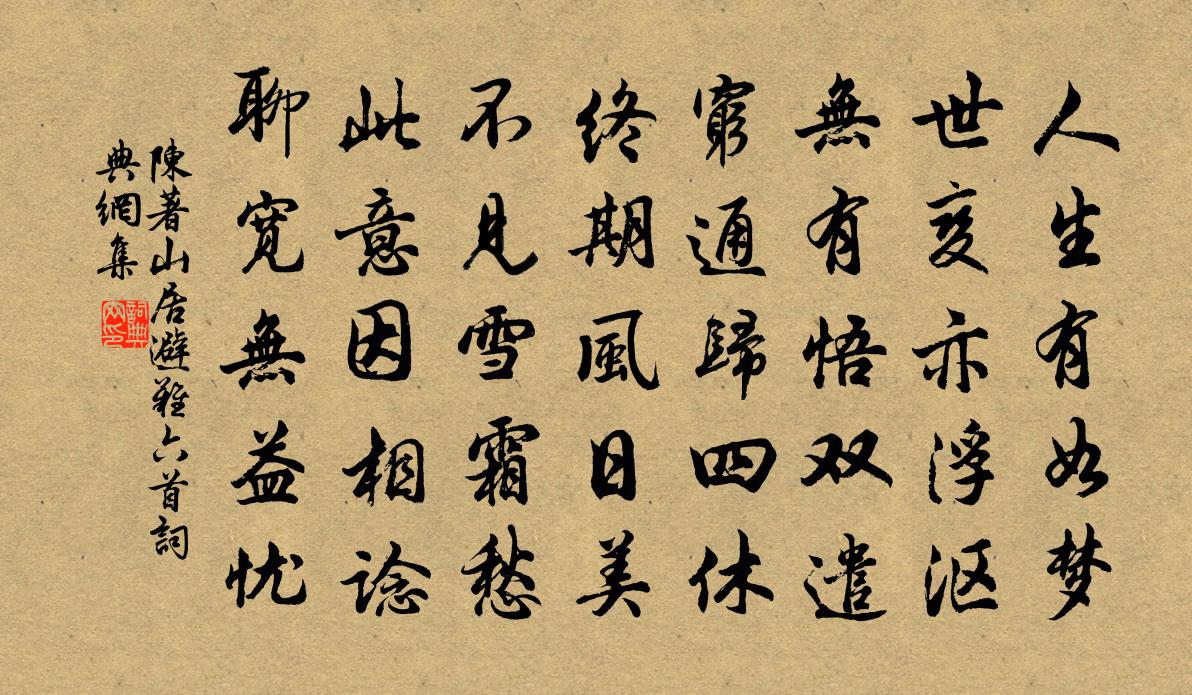 人生有如梦
世变亦浮沤
無有悟双遣
窮通歸四休
終期風日美
不見雪霜愁
此意因相諗
聊寛無益忧
陳著山居避難六首詞
典網集
詞典